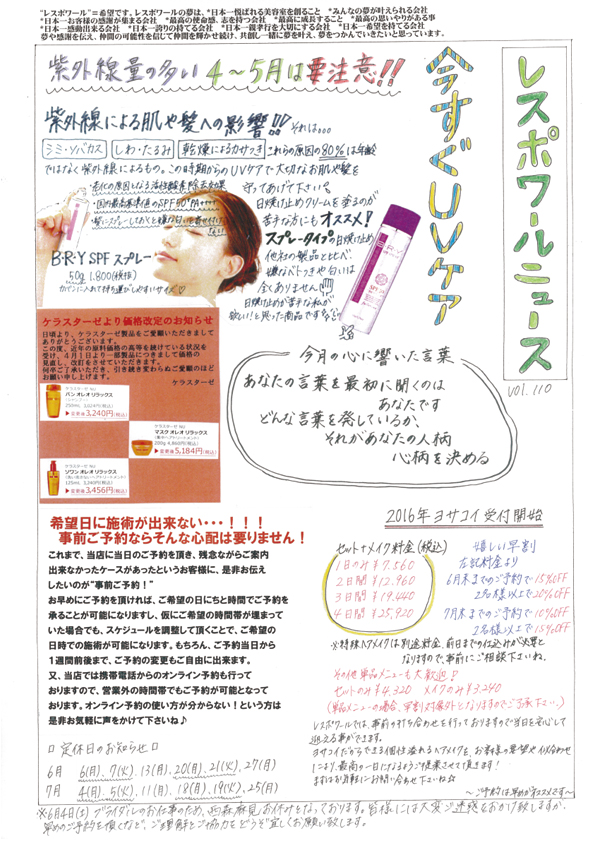 "レスポワール"=希望です。レスポワールの夢は、*日本一悦ばれる美容室を創ること　*みんなの夢が叶えられる会社
*日本一お客様の感謝が集まる会社　*最高の使命感、志を持つ会社　*最高に成長すること　*最高の思いやりがある事
*日本一感動出来る会社　*日本一誇りの持てる会社　*日本一親孝行を大切にする会社　*日本一希望を持てる会社
夢や感謝を伝え、仲間の可能性を信じて仲間を輝かせ続け、共創し一緒に夢を叶え、夢をつかんでいきたいと思っています。
レスポワールニュース
VOl.110
今すぐUVケア
紫外線量の多い4〜5月は要注意!!
紫外線による肌や髪への影響!! それは…
シミ・ソバカス　しわ・たるみ　乾燥によるカサつき　これらの原因の80%は年齢
ではなく紫外線によるもの。この時期からのUVケアで大切なお肌や髪を
守ってあげて下さい。
老化の原因となる活性酸素除去効果
国内最高基準値のSPF50+PA++++
髪にスプレーしておくと嫌な匂いを寄せ付けない
B・R・Y SPFスプレー
50g 1,800(税抜)
カバンに入れて持ち運びしやすいサイズ♡
日焼け止めクリームを塗るのが
苦手な方にもオススメ!
スプレータイプの日焼け止め
他社の製品と比べ
嫌なベトつきや白いは
全くありません
日焼け止めが苦手な私が
欲しい!と思った商品です
ケラスターゼより価格改定のお知らせ
日頃より、ケラスターゼ製品をご愛顧いただきまして
ありがとうございます。
この度、近年の原料価格の高等を続けている状況を
受け、4月1日より一部製品につきまして価格の
見直し、改訂をさせていただきます。
何卒ご了承いただき、引き続き変わらぬご愛顧のほど
お願い申し上げます。
ケラスターゼ
ケラスターゼ NU
バン オレオ リラックス
(シャンプー)
250mL 3,024円(税込)
▶変更後3,240円(税込)
ケラスターゼ NU
マスク オレオ リラックス
(集中ヘアトリートメント)
200g 4,860円(税込)
▶変更後5,184円(税込)
ケラスターゼ NU
ソワン オレオ リラックス
(洗い流さないヘアトリートメント)
125mL 3,240円(税込)
▶変更後3,456円(税込)
今月の心に響いた言葉
あなたの言葉を最初に聞くのは
あなたです
どんな言葉を発しているか、
それがあなたの人柄
心柄を決める
希望日に施術が出来ない・・・！！！
事前ご予約ならそんな心配は要りません！
これまで、当店に当日のご予約を頂き、残念ながらご案内
出来なかったケースがあったというお客様に、是非お伝え
したいのが"事前ご予約！"
お早めにご予約を頂ければ、ご希望の日にちと時間でご予約を
承ることが可能になりますし、仮にご希望の時間帯が埋まって
いた場合でも、スケジュールを調整して頂くことで、ご希望の
日時での施術が可能になります。もちろん、ご予約当日から
1週間前後まで、ご予約の変更もご自由に出来ます。
又、当店では携帯電話からのオンライン予約も行って
おりますので、営業外の時間帯でもご予約が可能となって
おります。オンライン予約の使い方が分からない！という方は
是非お気軽に声をかけて下さいね♪
□定休日のお知らせ□
6月　6(月).7(火).13(月).20(月).21(火).27(月)
7月　4(月).5(火).11(月).18(月).19(火).25(月)
2016年ヨサコイ受付開始
セット+メイク料金(税込)
1日のみ¥7,560
2日間¥12,960
3日間¥19,440
4日間¥25,920
嬉しい早割
左記料金より
6月末までのご予約で15%OFF
2名様以上で20%OFF
7月末までのご予約で10%OFF
2名様以上で15%OFF
※特殊ヘアメイクは別途料金、前日までの仕込みが必要と
なりますので、事前にご相談下さいね。
その他単品メニューも大歓迎♪
セットのみ¥4,320　メイクのみ¥3,240
(単品メニューの場合、早割対象外となりますのでご了承下さい。)
レスポワールでは、事前の打ち合わせを行っておりますので当日を安心して
迎える事ができます。
ヨサコイだからできる個性溢れるヘアメイクを、お客様の要望や似合わせ
により、最高の一日になるようご提案させて頂きます!
まずはお気軽にお問い合わせ下さいね☆
〜ご予約は早めがオススメです〜
※6月4日(土)ブライダルのお仕事のため、西森麻見お休みとなっております。皆様には大変ご迷惑をおかけ致しますが、
早めのご予約を頂くなど、ご理解とご協力をどうぞ宜しくお願い致します。